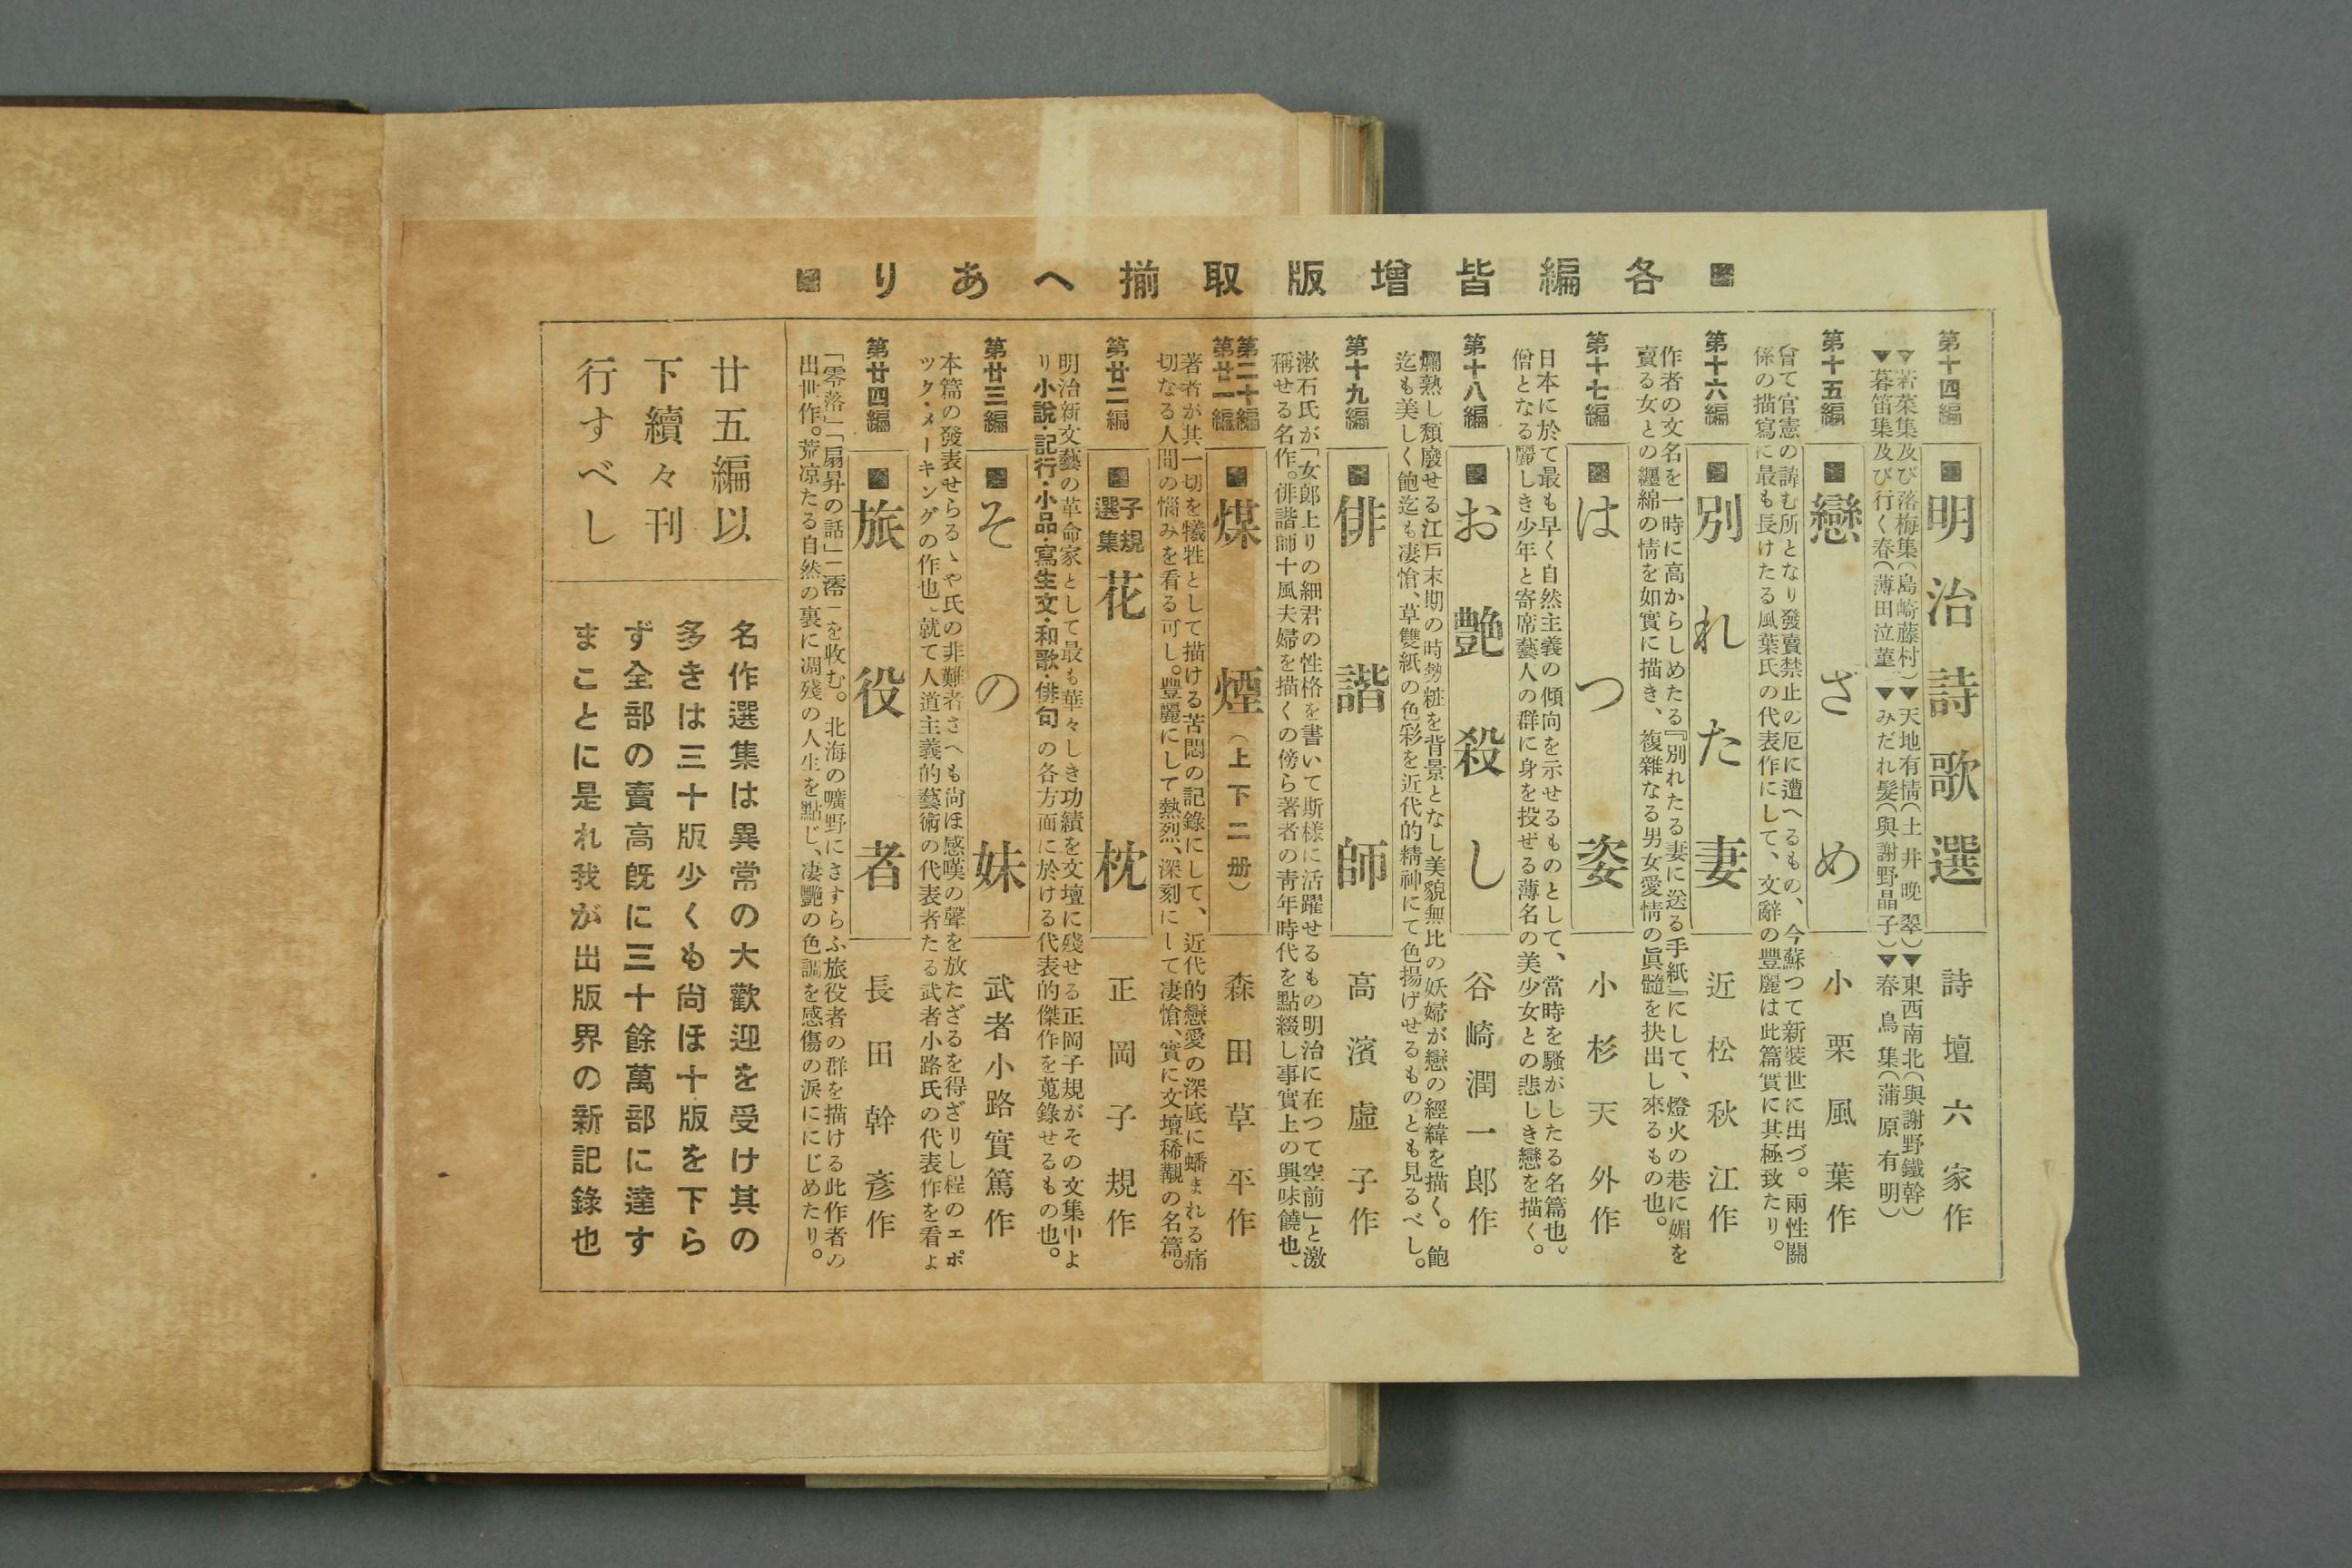 ■各編皆增版取揃へあり■
第十四編
■明治詩歌選
詩壇六家作
▼若菜集及び落梅集(島崎藤村)▼天地有情(土井晩翠)▼東西南北(與謝野鐵幹)
▼暮笛集及び行く春(薄田泣菫)▼みだれ髮(與謝野晶子)▼春鳥集(蒲原有明)
第十五編
■戀ざめ
小栗風葉作
曾て官憲の諱む所となり發賣禁止の厄に遭へるもの、今蘇つて新裝世に出づ。兩性關
係の描寫に最も長けたる風葉氏の代表作にして、文辭の豐麗は此篇實に其極致たり。
第十六編
■別れた妻
近松秋江作
作者の文名を一時に高からしめたる『別れたる妻に送る手紙』にして、燈火の巷に媚を
賣る女との纒綿の情を如實に描き、複雜なる男女愛情の眞髓を抉出し來るもの也。
第十七編
■はつ姿
小杉天外作
日本に於て最も早く自然主義の傾向を示せるものとして、當時を騷がしたる名篇也。
僧となる麗しき少年と寄席藝人の群に身を投ぜる薄名の美少女との悲しき戀を描く。
第十八編
■お艶殺し
谷崎潤一郎作
爛熟し頽廢せる江戸末期の時勢粧を背景となし美貌無比の妖婦が戀の經緯を描く。飽
迄も美しく飽迄も凄愴、草雙紙の色彩を近代的精神にて色揚げせるものとも見るべし。
第十九編
■俳諧師
高濱虛子作
漱石氏が「女郎上りの細君の性格を書いて斯樣に活躍せるもの明治に在つて空前」と激
稱せる名作。俳諧師十風夫婦を描くの傍ら著者の青年時代を點綴し事實上の興味饒也、
第二十編
第廿一編
■煤煙(上下二册)
森田草平作
著者が其一切を犧牲として描ける苦悶の記錄にして、近代的戀愛の深底に蟠まれる痛
切なる人間の惱みを看る可し。豐麗にして熱烈、深刻にして凄愴、實に文壇稀覯の名篇。
第廿二編
■子規選集 花枕
正岡子規作
明治新文藝の革命家として最も華々しき功績を文壇に殘せる正岡子規がその文集中よ
り小說・記行・小品・寫生文・和歌・俳句の各方面に於ける代表的傑作を蒐錄せるもの也。
第廿三編
■その妹
武者小路實篤作
本篇の發表せらるゝや氏の非難者さへも尙ほ感嘆の聲を放たざるを得ざりし程のエポ
ツク・メーキングの作也、就て人道主義的藝術の代表者たる武者小路氏の代表作を看よ
第廿四編
■旅役者
長田幹彥作
「零落」「扇昇の話」「澪」を收む。北海の曠野にさすらふ旅役者の群を描ける此作者の
出世作。荒凉たる自然の裏に凋殘の人生を點じ、凄艷の色調を感傷の淚ににじめたり。
廿五編以
下續々刊
行すべし
名作選集は異常の大歡迎を受け其の
多きは三十版少くも尙ほ十版を下ら
ず全部の賣高既に三十餘萬部に達す
まことに是れ我が出版界の新記錄也